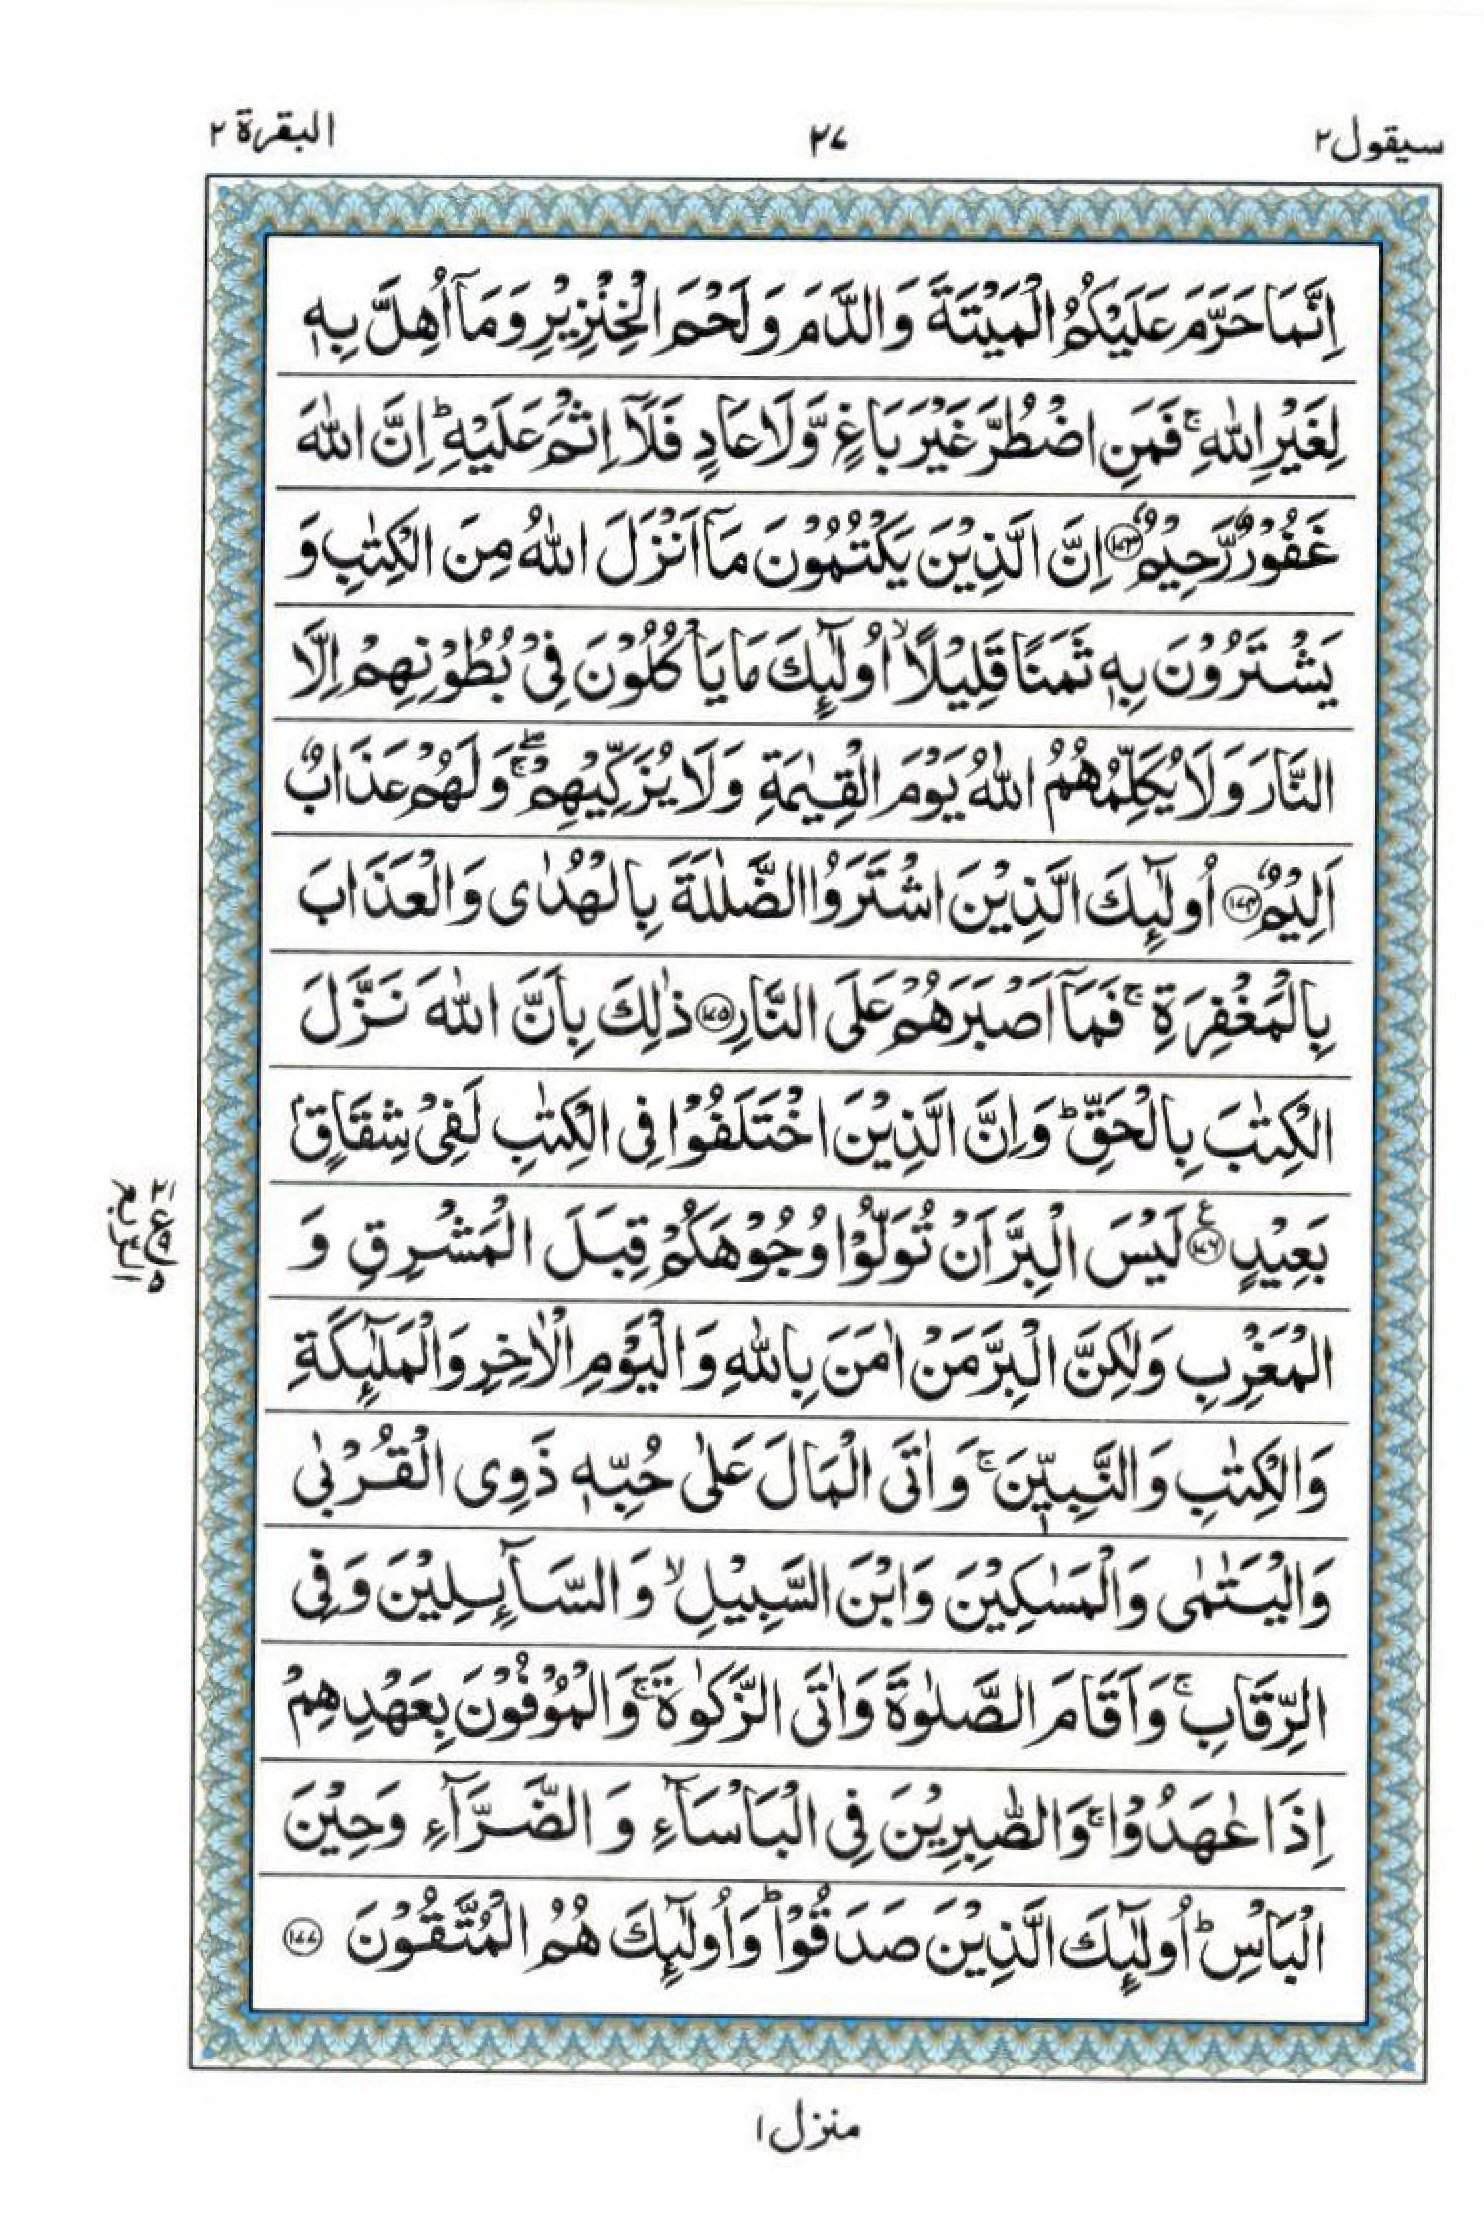 سيقول ٢ ٢٧ البقرة ٢
اِنَّمَا حَرَّمَ عَلَيْكُمُ الْمَيْتَةَ وَالدَّمَ وَلَحْمَ الْخِنْزِيْرِ وَمَآ اُهِلَّ بِهٖ
لِغَيْرِ اللّٰهِ ۚ فَمَنِ اضْطُرَّ غَيْرَ بَاغٍ وَّلَا عَادٍ فَلَآ اِثْمَ عَلَيْهِ ؕ اِنَّ اللّٰهَ
غَفُوْرٌ رَّحِيْمٌ ﴿۱۷۳﴾ اِنَّ الَّذِيْنَ يَكْتُمُوْنَ مَآ اَنْزَلَ اللّٰهُ مِنَ الْكِتٰبِ وَ
يَشْتَرُوْنَ بِهٖ ثَمَنًا قَلِيْلًا ۙ اُولٰٓئِكَ مَا يَاْكُلُوْنَ فِيْ بُطُوْنِهِمْ اِلَّا
النَّارَ وَلَا يُكَلِّمُهُمُ اللّٰهُ يَوْمَ الْقِيٰمَةِ وَلَا يُزَكِّيْهِمْ ۖۚ وَلَهُمْ عَذَابٌ
اَلِيْمٌ ﴿۱۷۴﴾ اُولٰٓئِكَ الَّذِيْنَ اشْتَرَوُا الضَّلٰلَةَ بِالْهُدٰى وَالْعَذَابَ
بِالْمَغْفِرَةِ ۚ فَمَآ اَصْبَرَهُمْ عَلَى النَّارِ ﴿۱۷۵﴾ ذٰلِكَ بِاَنَّ اللّٰهَ نَزَّلَ
الْكِتٰبَ بِالْحَقِّ ؕ وَاِنَّ الَّذِيْنَ اخْتَلَفُوْا فِي الْكِتٰبِ لَفِيْ شِقَاقٍۭ
بَعِيْدٍ ﴿۱۷۶﴾ ع لَيْسَ الْبِرَّ اَنْ تُوَلُّوْا وُجُوْهَكُمْ قِبَلَ الْمَشْرِقِ وَ
الْمَغْرِبِ وَلٰكِنَّ الْبِرَّ مَنْ اٰمَنَ بِاللّٰهِ وَالْيَوْمِ الْاٰخِرِ وَالْمَلٰٓئِكَةِ
وَالْكِتٰبِ وَالنَّبِيّٖنَ ۚ وَاٰتَى الْمَالَ عَلٰى حُبِّهٖ ذَوِي الْقُرْبٰى
وَالْيَتٰمٰى وَالْمَسٰكِيْنَ وَابْنَ السَّبِيْلِ ۙ وَالسَّآئِلِيْنَ وَفِي
الرِّقَابِ ۚ وَاَقَامَ الصَّلٰوةَ وَاٰتَى الزَّكٰوةَ ۚ وَالْمُوْفُوْنَ بِعَهْدِهِمْ
اِذَا عٰهَدُوْا ۚ وَالصّٰبِرِيْنَ فِي الْبَاْسَآءِ وَالضَّرَّآءِ وَحِيْنَ
الْبَاْسِ ؕ اُولٰٓئِكَ الَّذِيْنَ صَدَقُوْا ؕ وَاُولٰٓئِكَ هُمُ الْمُتَّقُوْنَ ﴿۱۷۷﴾
منزل ١